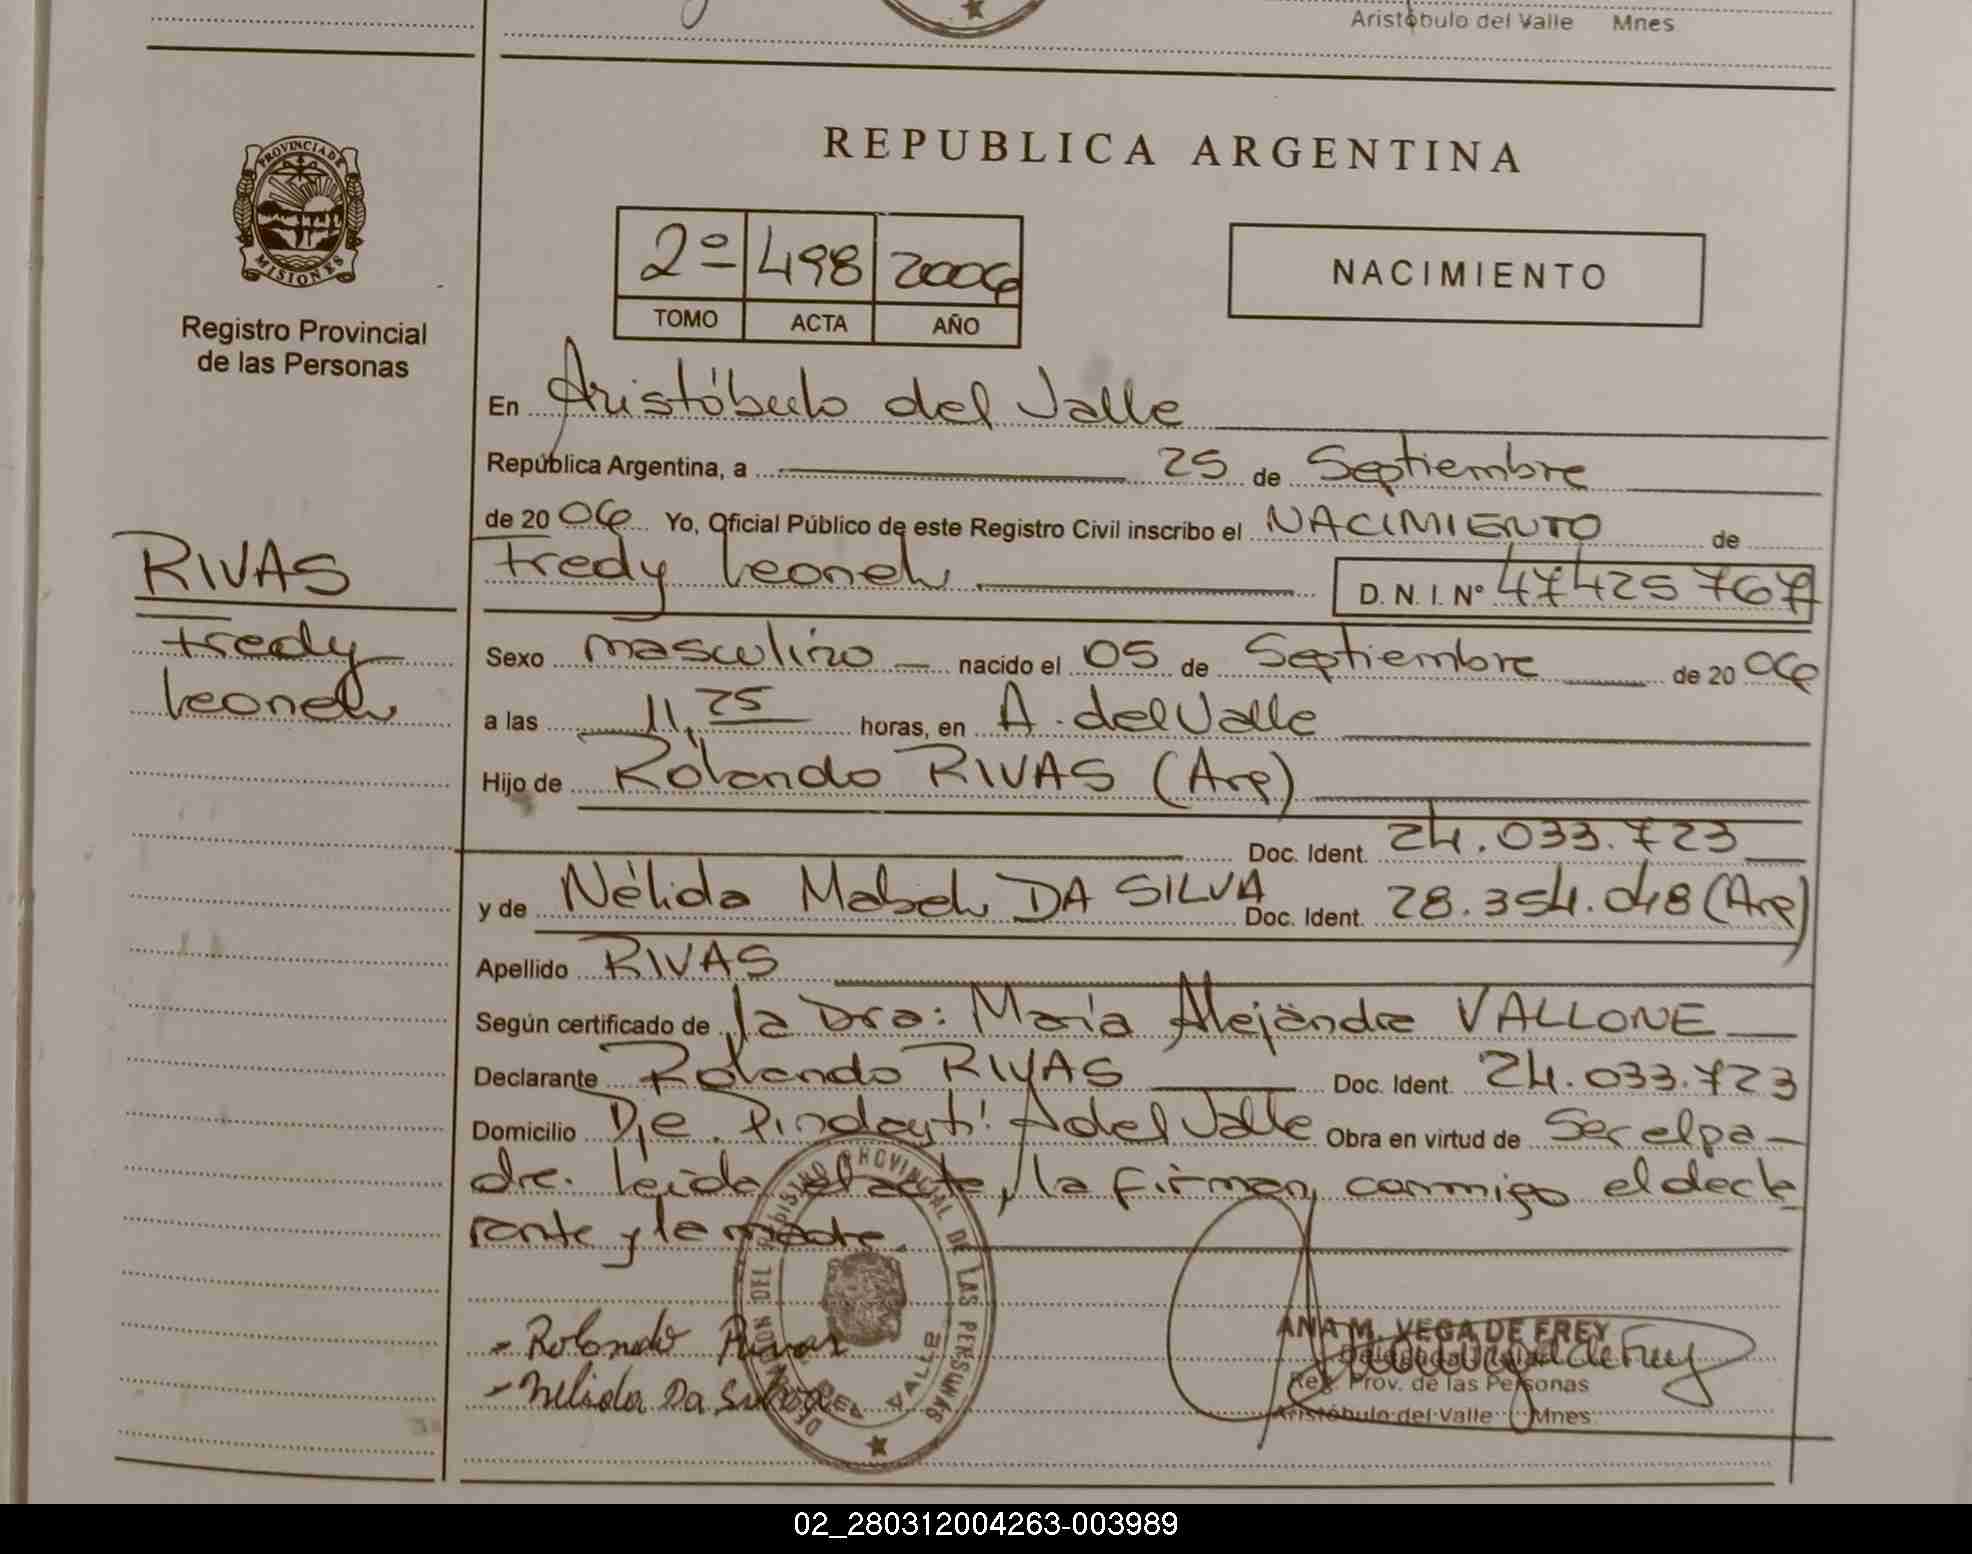 Aristóbulo del Valle Mnes
PROVINCIA DE
MISIONES
Registro Provincial
de las Personas
RIVAS
Fredy
Leonel
REPUBLICA ARGENTINA
2º 498 2006
TOMO ACTA AÑO
NACIMIENTO
En Aristóbulo del Valle
República Argentina, a 25 de Septiembre
de 2006 Yo, Oficial Público de este Registro Civil inscribo el NACIMIENTO de
Fredy Leonel D. N. I. Nº 47425767
Sexo masculino nacido el 05 de Septiembre de 2006
a las 11,25 horas, en A. del Valle
Hijo de Rolando RIVAS (Arg)
Doc. Ident. 24.033.723
y de Nélida Mabel DA SILVA Doc. Ident. 28.354.048 (Arg)
Apellido RIVAS
Según certificado de la Dra: María Alejandra VALLONE
Declarante Rolando RIVAS Doc. Ident. 24.033.723
Domicilio Pje. Pindayti A del Valle Obra en virtud de Ser el pa-
dre. Leida el acta, la firman conmigo el decla
rante y la madre.
- Rolando Rivas
- Nelida Da Silva
REGISTRO PROVINCIAL DE LAS PERSONAS
DEL VALLE
ANA M. VEGA DE FREY
Reg. Prov. de las Personas
Aristóbulo del Valle Mnes
02_280312004263-003989